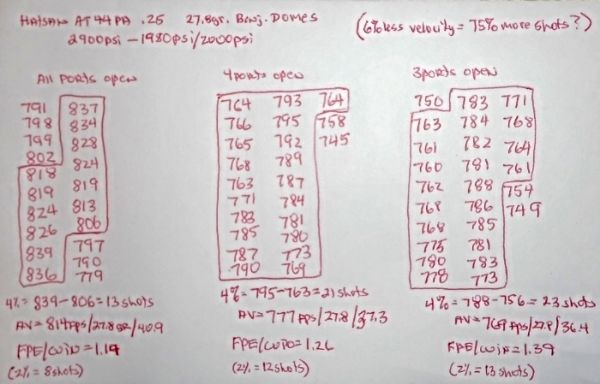 HATSAN AT44PA .25 27.8gr. Benj. Domes
2900psi - 1980psi/2000psi
(6% less velocity = 75% more shots?)
All Ports open
791 837
798 834
799 828
802 824
818 819
819 813
824 806
826 797
839 790
836 779
4% = 839-806 = 13 shots
AV = 814fps/27.8gr/40.9
FPE/cuin = 1.19
(2% = 8 shots)
4 ports open
764 793 764
766 795 758
765 792 745
768 789
763 787
771 784
783 781
785 780
787 773
790 769
4% = 795-763 = 21 shots
AV = 777fps/27.8/37.3
FPE/cuin = 1.26
(2% = 12 shots)
3 ports open
750 783 771
763 784 768
761 782 764
760 781 761
762 788 754
768 786 749
768 785
775 781
780 783
778 773
4% = 788-756 = 23 shots
AV = 769fps/27.8/36.4
FPE/cuin = 1.39
(2% = 13 shots)